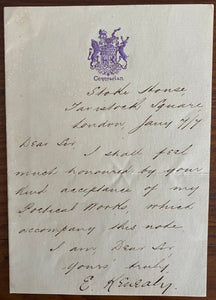 Centurion
Stoke House,
Tavistock Square,
London, Jany 7/7
Dear Sir
I shall feel
much honoured by your
kind acceptance of my
Poetical Works, which
accompany this note.
I am, Dear Sir,
Yours truly
E. Kenealy.